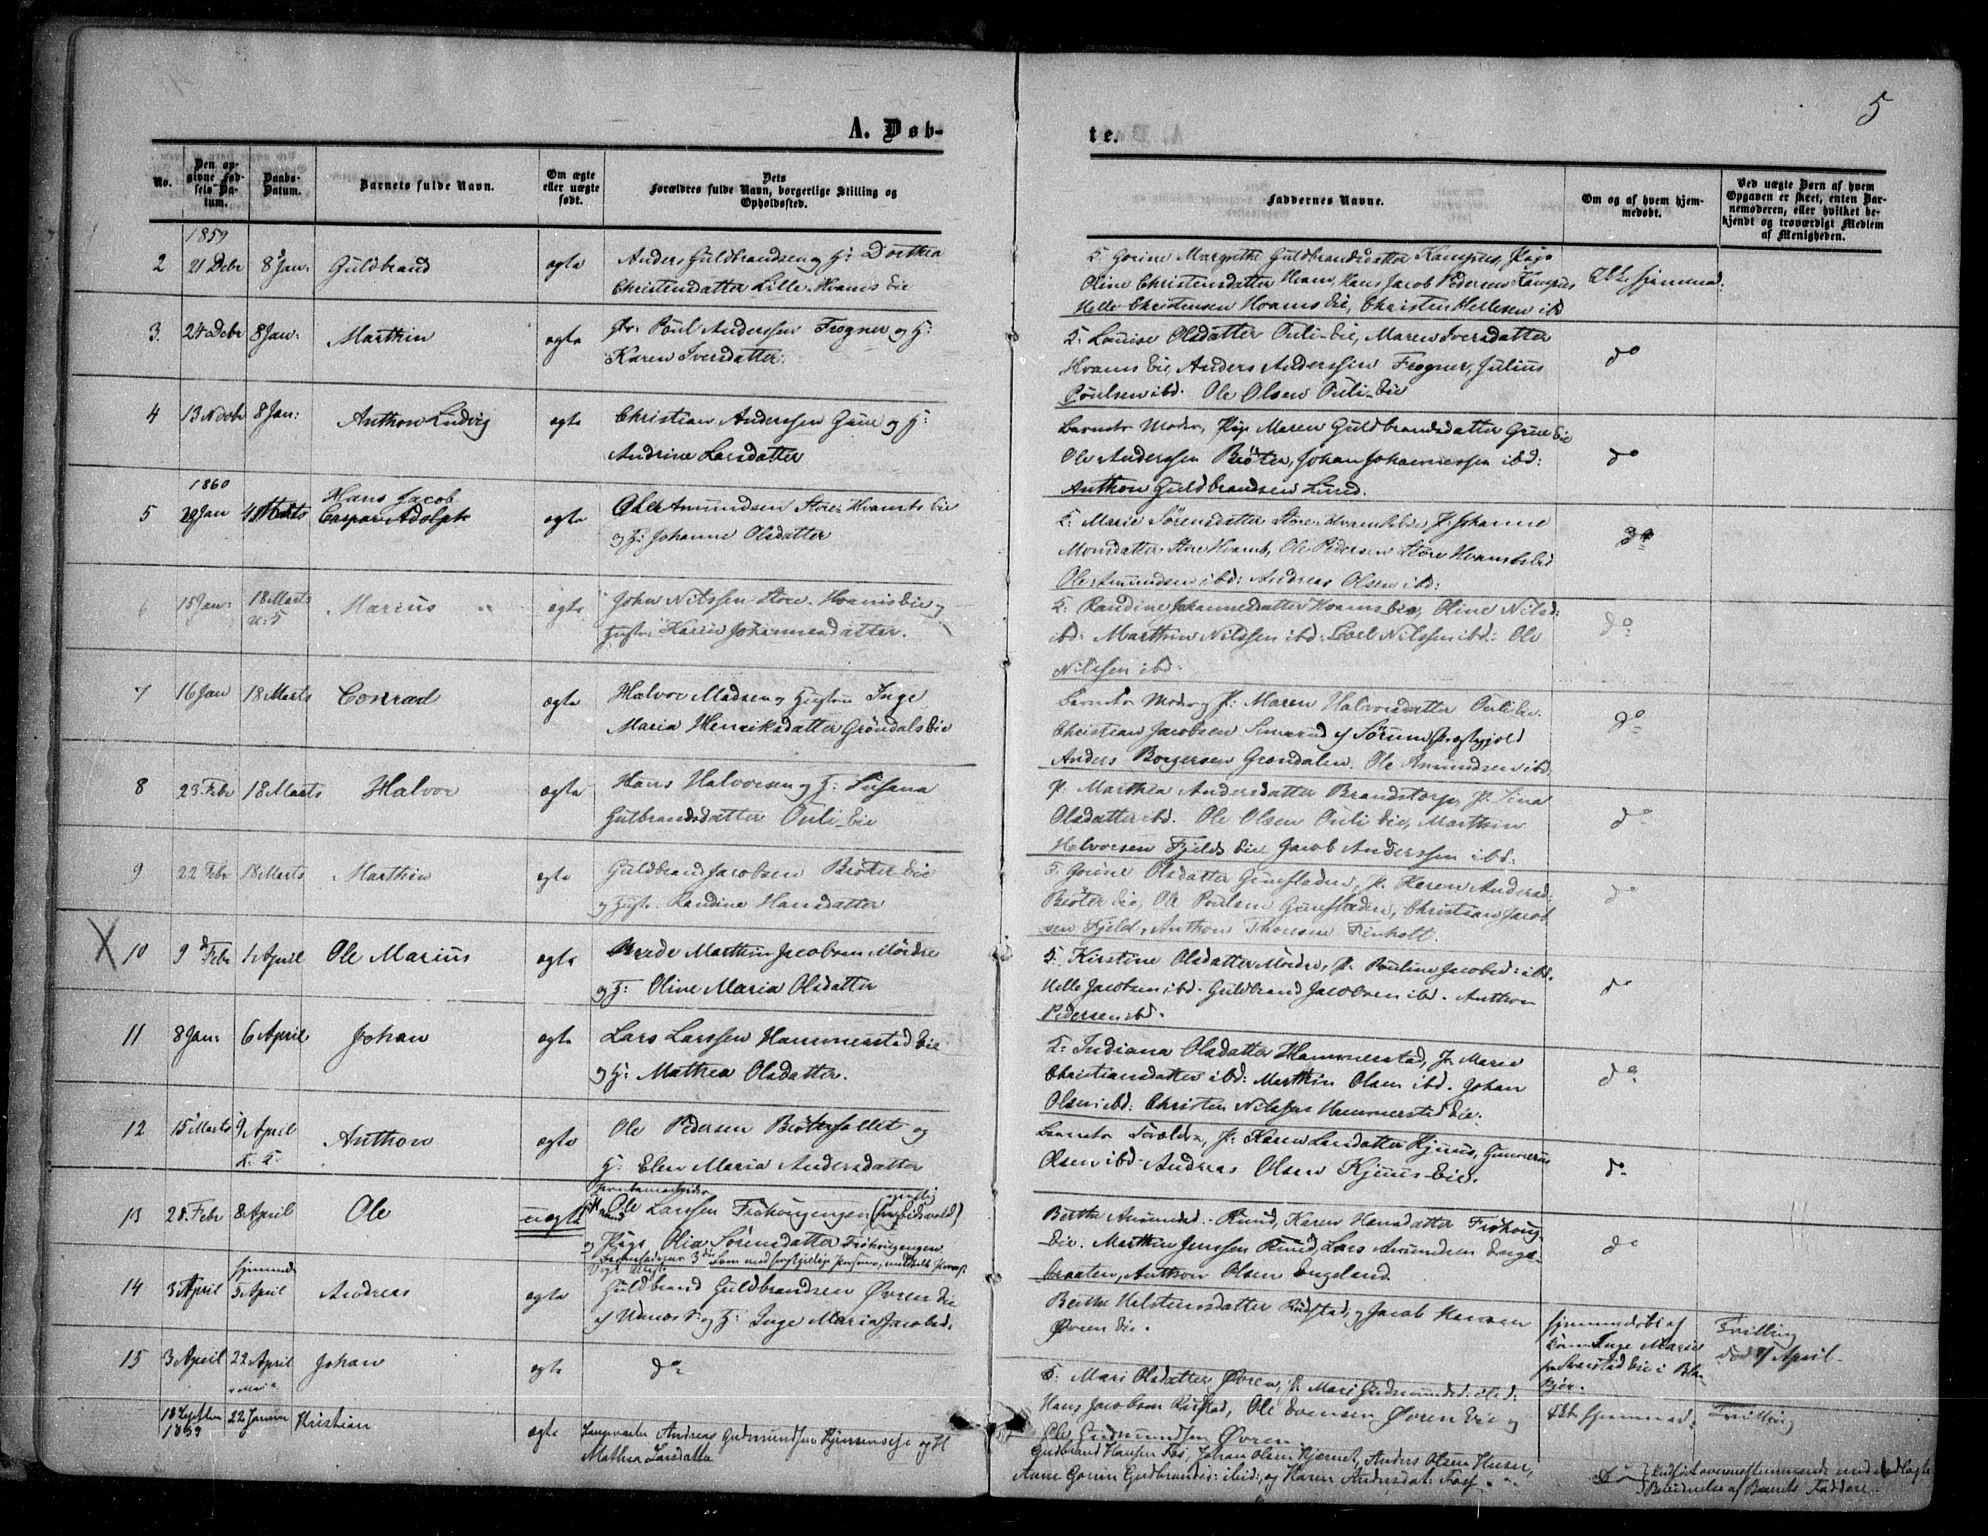 5
A. Døb-
te.
No.
Den op-
givne Fød-
sels Da-
tum.
Daabs-
Datum.
Barnets fulde Navn.
Om ægte
eller uægte
født.
Dets
Forældres fulde Navn, borgerlige Stilling og
Opholdssted.
Faddernes Navne.
Om og af hvem hjem-
medøbt.
Ved uægte Børn af hvem
Opgaven er skeet, enten Bar-
nemoderen, eller hvilket be-
kjendt og troværdigt Medlem
af Menigheden.
1859
2 21 Debr 8 Jan: Guldbrand ægte Anders Guldbrandsen og H: Dorthea
Christensdatter Lille Hvams Eie
Gorine Margrethe Guldbrandsdatter Kampus, Pige
Oline Christensdatter Hvam, Hans Jacob Pedersen Kampus
Helle Christensen Hvams Eie, Christen Hellesen ibd
Ikke hjemmed.
3. 24 Debr 8 Jan: Marthin ægte Poul Anderssen Frogner og H:
Karen Iversdatter.
Louise Olsdatter Ouli-Eie, Maren Iversdatter
Hvams Eie, Anders Anderssen Frogner, Julius
Poulsen ibd. Ole Olsen Ouli-Eie
do
4 13 Novbr 8 Jan: Anthon Ludvig ægte Christian Anderssen Grue og H:
Andrine Larsdatter
Barnets Moder, Pige Maren Guldbrandsdatter Grue Eie
Ole Anderssen Brøter, Johan Johannessen ibd:
Anthon Guldbrandsen Lund.
do
1860
5 29 Jan 4 Marts Hans Jacob
Caspar Adolph ægte Ole Amundsen Store Hvams Eie
og H: Johanne Olsdatter
Marie Sørensdatter Store Hvams Eie, P. Johanne
Monsdatter Store Hvams, Ole Pedersen Store Hvams Eie
Ole Amundsen ibd: Andreas Olsen ibd:
do
6 15 Jan: 18 Marts Marius ægte John Nilssen Store Hvams Eie og
Hustr: Karen Johannesdatter.
Randine Johannesdatter Hvams Eie, Oline Nilsd:
ibd: Marthin Nilssen ibd: Carl Nilssen ibd: Ole
Nilssen ibd.
do
7 16 Jan 18 Marts Conrad ægte Halvor Madsen og Hustru Inge
Maria Henriksdatter Grøndals Eie
Barnets Moder og P: Maren Halvorsdatter Ouli Eie.
Christian Jacobsen Simerud af Sørum Præstegjeld
Anders Borgersen Grøndalen. Ole Amundsen ibd.
do
8 23 Febr 18 Marts Halvor ægte Hans Halvorsen og H: Susana
Gulbrandsdatter Ouli-Eie
P. Marthea Andersdatter Brandstorp, P. Lina
Olsdatter ibd. Ole Olsen Ouli Eie, Marthin
Halvorsen Fjelds Eie Jacob Anderssen ibd:
do
9 22 Febr 18 Marts Marthin ægte Guldbrand Jacobsen Brøter Eie
og Hustr. Randine Hansdatter
Gorine Olsdatter, P. Karen Andersd:
Brøter Eie, Ole Poulsen, Christian Jacob-
sen Fjeld, Anthon Thoresen
do
X 10 9 Febr 1 April Ole Marius ægte Marthin Jacobsen Mordre
og H: Oline Maria Olsdatter
Kirstine Olsdatter Mordre, P. Pouline Jacobsd: ibd.
Helle Jacobsen ibd. Guldbrand Jacobsen ibd. Anthon
Pedersen ibd.
do
11 8 Jan: 6 April Johan ægte Lars Larssen Hammerstad Eie
og H: Mathea Olsdatter.
Indiana Olsdatter Hammerstad, P. Marie
Christiansdatter ibd: Marthin Olsen ibd. Johan
Olsen ibd: Christen Nilssen Hammerstad Eie.
do
12 15 Marts 9 April Anthon ægte Ole Pedersen Brøterfallet og
H: Elen Maria Andersdatter
Barnets Forældre, P: Karen Larsdatter Kjuus, Gunnerus
Olsen ibd. Andreas Olsen Kjuus Eie.
do
13 28 Febr 8 April Ole uægte Ole Larssen Frøhougengen
og Pige Olia Sørensdatter Frøhougengen.
Berthe Amundsd. Rund, Karen Hansdatter Frøhoug-
Eie. Marthin Jenssen Rund, Lars Amundsen Enge-
braaten, Anthon Olsen Engeland
do
14 3 April hjemmed.
5 April Andreas ægte Guldbrand Guldbrandsen Øvren Eie
af Udnes og H: Inge Maria Jacobsd.
Berthe Halstensdatter Rudstad, og Jacob Hansen
Øvren Eie.
hjemmedøbt af
Inge Marie
Svarstad Eie i Bla-
kjer.
Tvilling
død 7/ April
15 3 April 22 April Johan ægte do
Mari Olsdatter Øvren, P. Mari Gudmundsd: ibd:
Hans Jacobsen Rustad, Ole Evensen Øvren Eie og
Ole Gudmundsen Øvren
Ikke hjemmed: Tvilling
18 Septbr
1859 22 Januar Kristian ægte Andreas Gudmundsen og H
Mathea Larsdatter
Gudbrand Hansen, Johan Olsen Hjernet, Anders Olsen Huser,
Anne Gorine Gudbrandsd: ibid: og Karen Andersdat:
do
Indført overensstemmende med vedlagte
Bevidnelse af Barnets Faddere.